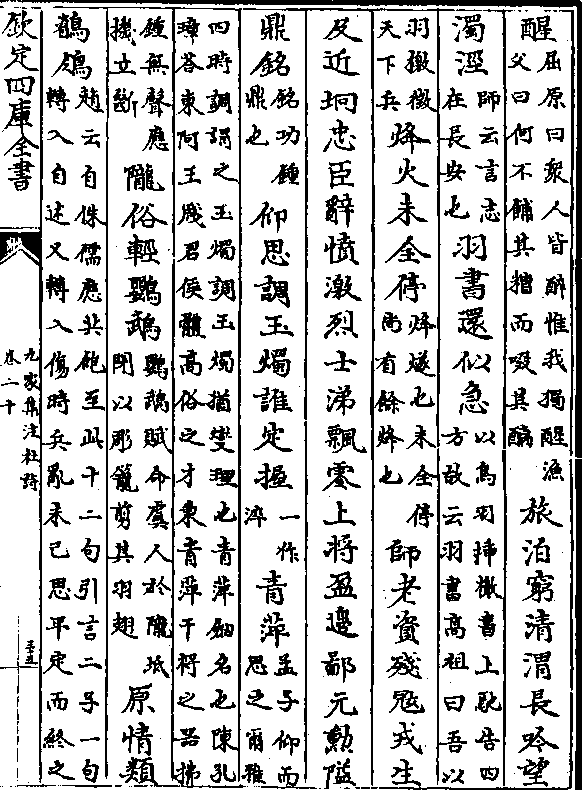 醒屈原曰衆人皆醉惟我獨醒漁父曰何不餔其糟而啜其醨旅泊窮清渭長吟望
濁涇師云言志在長安也羽書還似急以鳥羽揷檄書上馳告四方故云羽書高祖曰吾以
羽檄徵天下兵烽火未全停烽燧也未全停尚有餘烽也師老資殘冦戎生
及近坰忠臣辭憤激烈士涕飄零上將盈邊鄙元勳隘
鼎銘銘功鍾鼎也仰思調玉燭誰定握一作淬青萍孟子仰而思之爾雅
四時調謂之玉燭調玉燭猶燮理也青萍劔名也陳孔璋答東阿王牋君侯體高俗之才秉青萍干將之器拂
鍾無聲應機立斷隴俗輕鸚鵡鸚鵡賦命虞人於隴坻閉以彫籠剪其羽翅原情類
鶺鴒趙云自侏儒應共飽至此十二句引言二子一句轉入自述又轉入傷時兵亂未已思平定而終之
欽定四庫全書
九家集注杜詩
卷二十